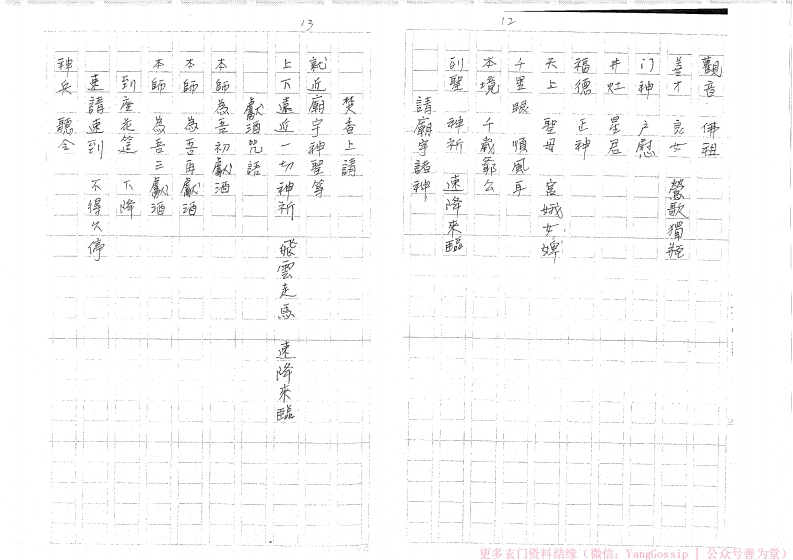 12
觀音　佛祖
善才　良女　鶯歌獨瓶
门神　户慰
井灶　星君
福德　正神
天上　聖母　宮娥女婢
千里眼　順風耳
本境　千歲爺公
列聖　神祈　速降來臨
請廟宇諸神
13
焚香上請
就近廟宇神聖等
上下遠近一切神祈　飛雲走馬　速降來臨
獻酒咒語
本師為吾初獻酒
本師　為吾再獻酒
本師　為吾三獻酒
到座花筵　下降
速請速到　不得久停
神兵　聽令
更多玄门资料结缘（微信：YangGossip | 公众号善为堂）